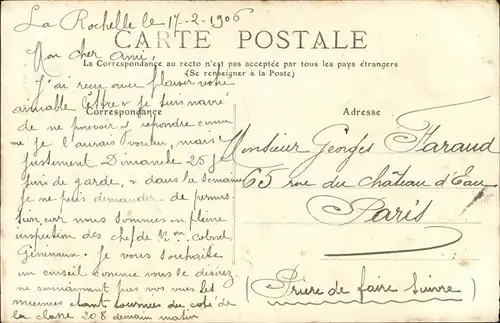 La Rochelle le 17-2-1906
CARTE POSTALE
Mon cher ami,
La Correspondance au recto n'est pas acceptée par tous les pays étrangers
(Se renseigner à la Poste)
J'ai reçu avec plaisir votre
aimable lettre & je suis navré
Correspondance
de ne pouvoir y répondre comme
je l'aurais voulu, mais
justement Dimanche 25 je
suis de garde, & dans la semaine
je ne puis demander de permis-
sion car nous sommes en pleine
inspection des chefs de Bon Colonel
Généraux. Je vous souhaite
un conseil comme vous le désirez,
ne connaissant pas vos vues les
miennes étant tournées du coté de
la classe 208 demain matin
Adresse
Monsieur Georges Faraud
65 rue du Château d'Eau
Paris
(Prière de faire suivre)